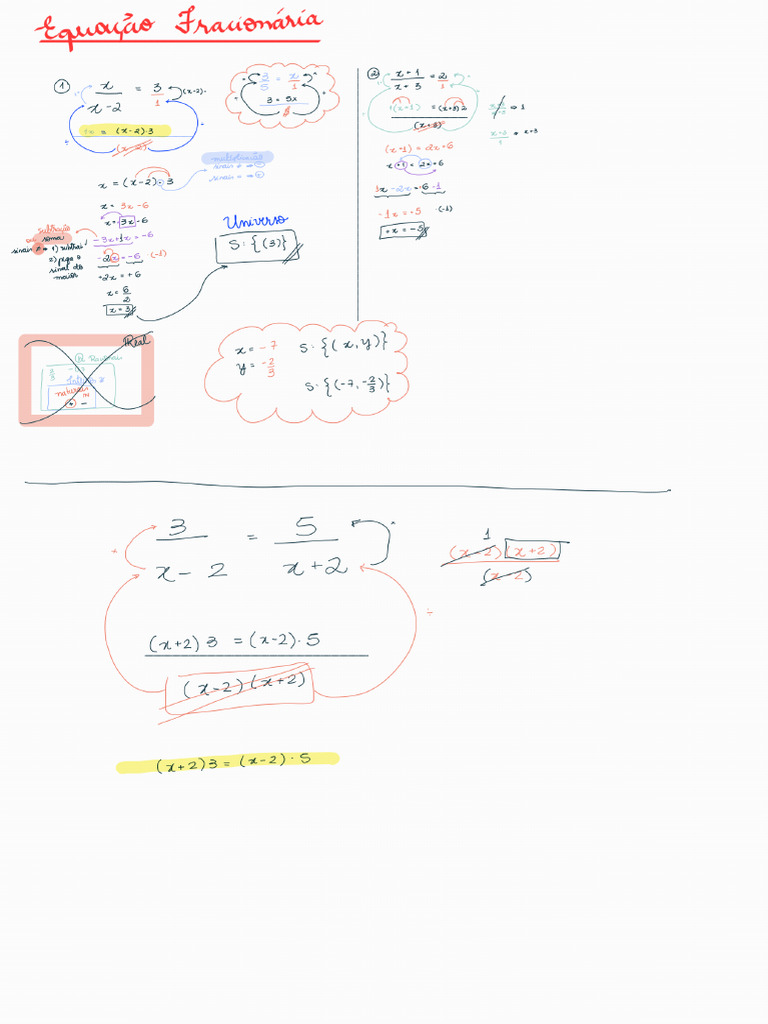 Equação Fracionária
①
x = 3
x-2 1
(x-2).
1x = (x-2)·3
(x-2)
3 = x
5 1
3 = 5x
5
x = (x-2)·3
multiplicação
sinais
sinais
x = 3x-6
x = 3x-6
-3x+1x = -6
-2x = -6 ·(-1)
+2x = +6
x = 6
2
x = 3
subtração
soma
sinais ≠ → 1) subtrai
2) pega o
sinal do
maior
Universo
S: {(3)}
②
x+1 = 2
x+3 1
(x+1) = (x+3)2
(x+3)
(x+1) = 2x+6
x+1 = 2x+6
1x-2x = 6-1
-1x = +5 ·(-1)
+x = -5
Real
Racionais
Inteiros Z
naturais
IN
+ -
x = -7
y = -2
3
S: {(x, y)}
S: {(-7, -2/3)}
3 = 5
x-2 x+2
(x+2)3 = (x-2)·5
(x-2)(x+2)
1
(x-2)(x+2)
(x-2)
÷
(x+2)3 = (x-2)·5